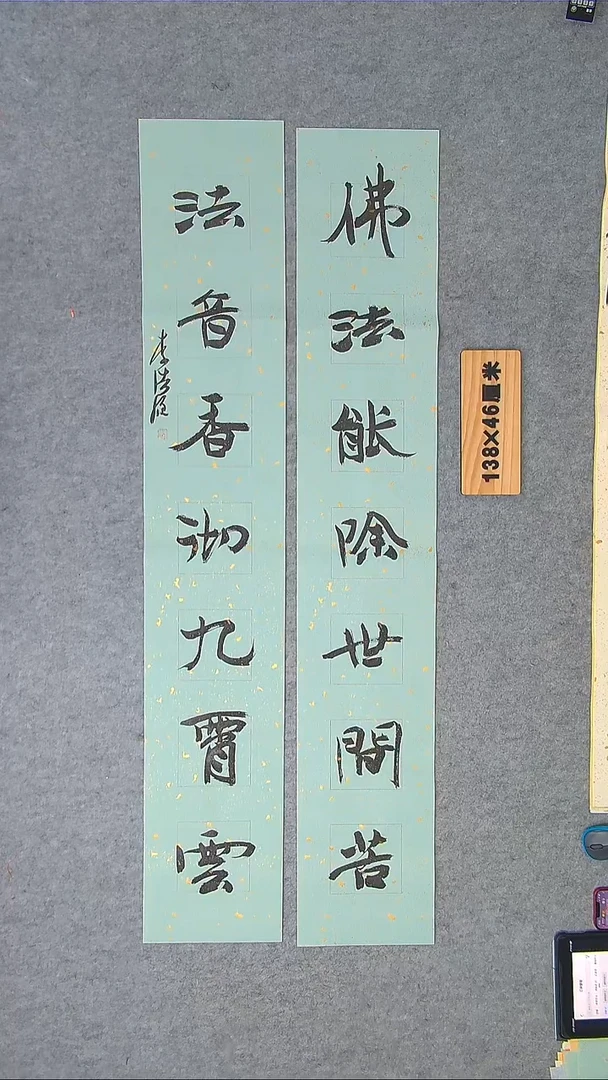 佛法能除世間苦
法音香沏九霄雲
138×46厘米